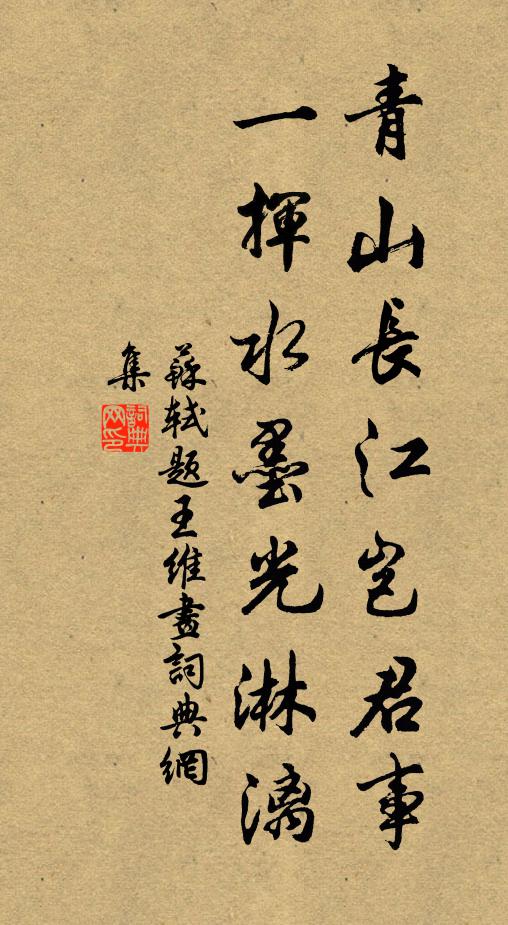 青山長江岂君事
一揮水墨光淋漓
蘇軾題王維畫詞典網
集
詞典网印